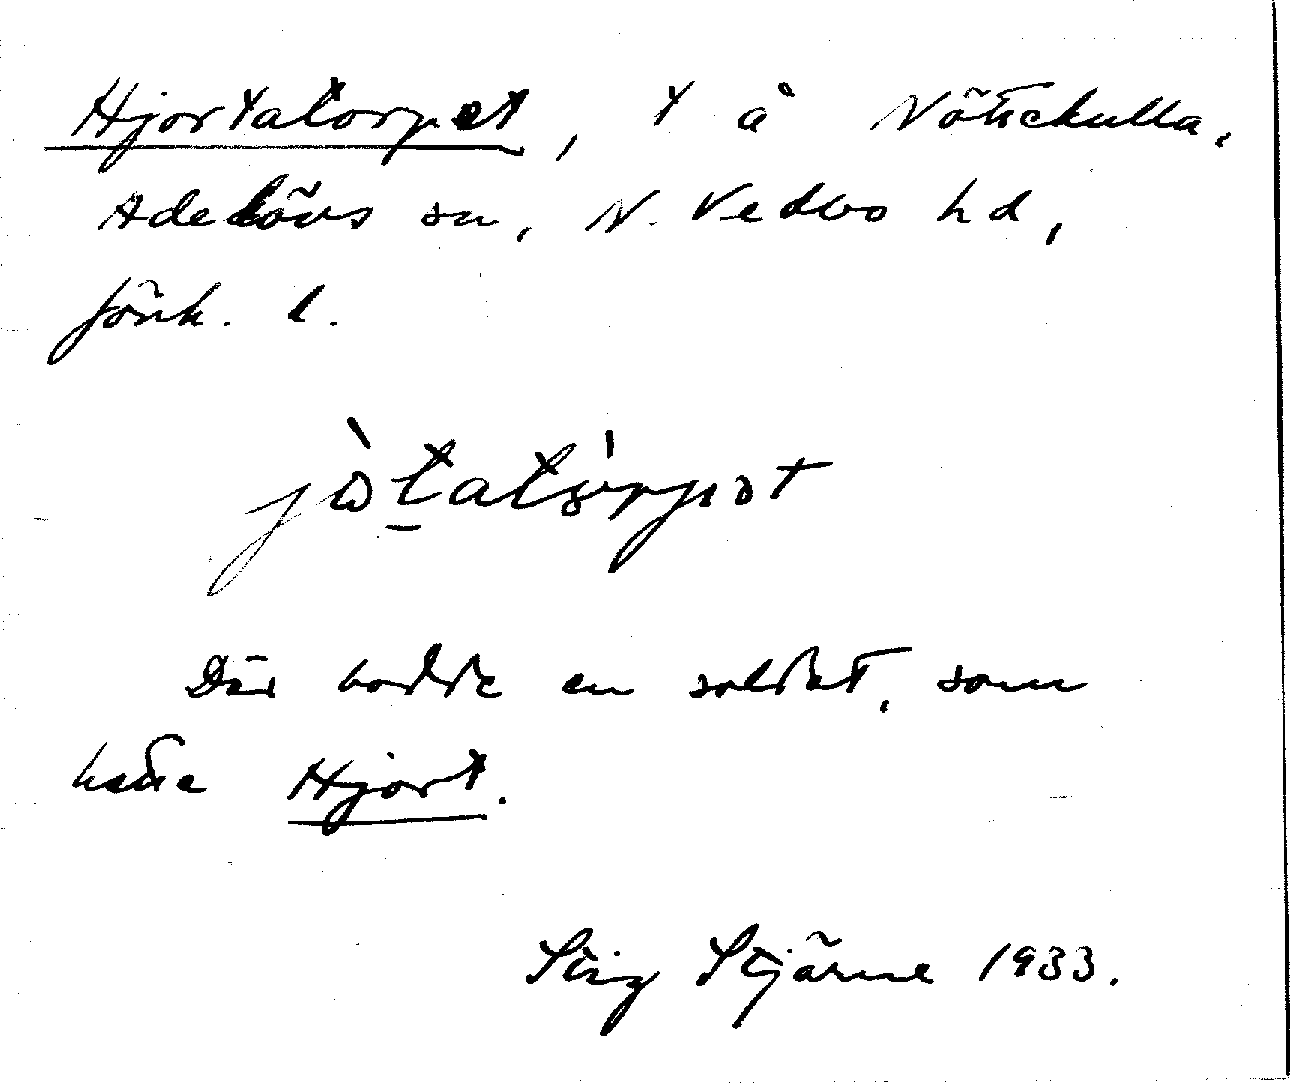 Hjortatorpet, t å Nöttekulla,
Adelövs sn, N. Vedbo hd,
Jönk. l.
jò̀tatórpət
Där bodde en soldat, som
hette Hjort.
Stig Stjärne 1933.